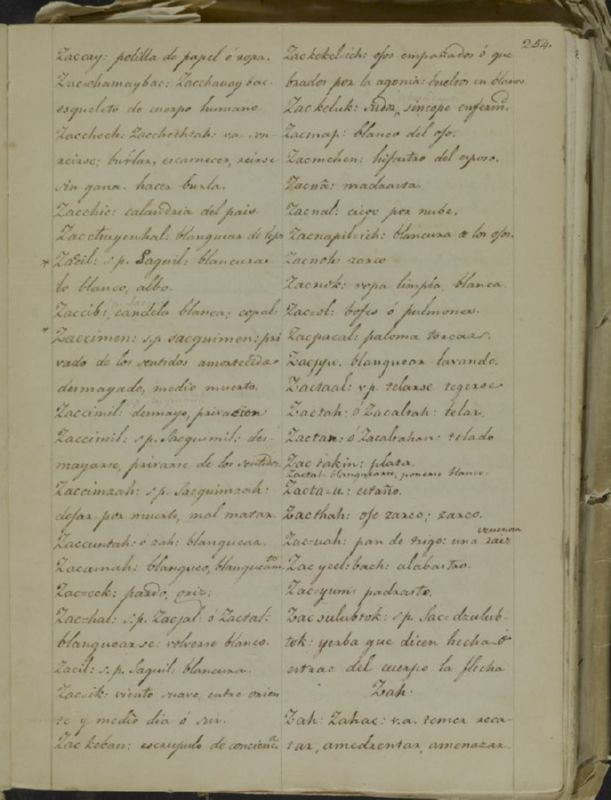 254.
Zaccay: polilla de papel ó ropa.
Zacchamaybac: Zacchavaybac.
esqueleto de cuerpo humano.
Zacchech: Zacchechtah: va. son-
reirse; burlar, escarnecer, reirse
sin gana. hacer burla.
Zacchic: calandria del pais.
blanquear de lejos
* Zacil: s.p. Saquil: blancura
lo blanco, albo.
Zaccib: candela blanca; copal.
* Zaccimen: s.p. sacquimen: pri
vado de los sentidos amortecido
desmayado, medio muerto.
Zaccimil: desmayo, privacion
Zaccimil: s.p. Sacquimil: des-
mayarse, privarse de los sentidos.
Zaccimzah: s.p. Sacquimzah:
dejar por muerto, mal matar.
Zaccuntah: ó zah: blanquear.
blanqueo,
Zac-eek: pardo, gris.
Zachal: s.p. Zacjal: ó Zactal:
blanquearse: volverse blanco.
Zacil: s.p. Saquil: blancura.
Zacik: viento suave, entre orien
te y medio dia ó sur.
Zackeban: escrupulo de conciencia.
ojos empañados ó que
brados por la agonia: vueltos en blanco.
Zackeluk: sudor, sincope enfermd.
Zacmap: blanco del ojo.
Zacmehen: hijastro del esposo.
Zacnā: madrasta.
Zacnal: ciego por nube.
Zacnapilich: blancura de los ojos.
Zacnoh: zarco
Zacnok: ropa limpia, blanca.
Zac-ol: bofes ó pulmones.
Zacpacal: paloma torcaz.
blanquear lavando.
Zactaal: vp. telarse tegerse
Zactah: ó Zacaltah: telar.
Zactan: ó Zacaltahan: telado
Zactakin: plata.
Zactal: blanquearse, ponerse blanco.
Zacta-u: estaño.
Zacthah: ojo zarco; zarco.
venenosa
Zac-uah: pan de trigo: una raiz
Zacyeel-bach: alabastro.
Zac-yum: padrasto.
Zacsulubtok: s.p. Sac-dzulub-
tok: yerba que dicen hecha ó
extrae del cuerpo la flecha
Zah.
Zah: Zahac: v.a. temer reca-
tar, amedrentar, amenazar.